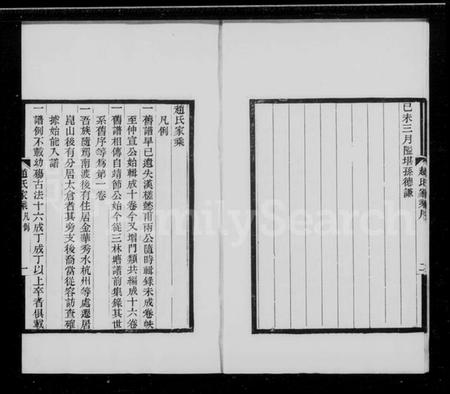 己未三月隘堪孫德謙
趙氏家乘
凡例
一舊譜早已遺失漢槎懋甫兩公隨時輯錄未成卷帙
至仲宣公始輯成十卷今又增門類共編成十六卷
一舊譜相傳自靖節公始今從三林塘譜前集錄其世
系舊序等為第一卷
一吾族隨蹕南渡後有住居金華秀水杭州等處遷居
崑山後有分居太倉者其旁支後裔當從容訪查確
據始能入譜
一譜例不載幼殤古法十六成丁成丁以上卒者俱載
趙氏家乘凡例
一
FamilySearch